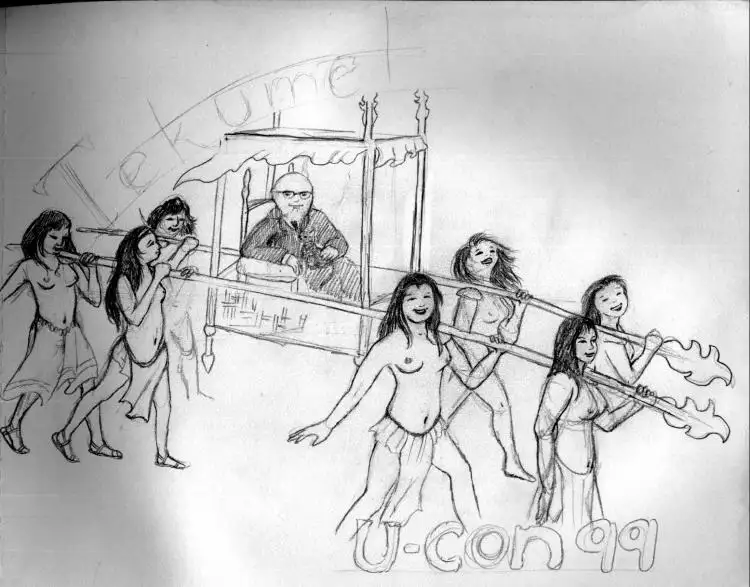 Tekumel
U-con 99